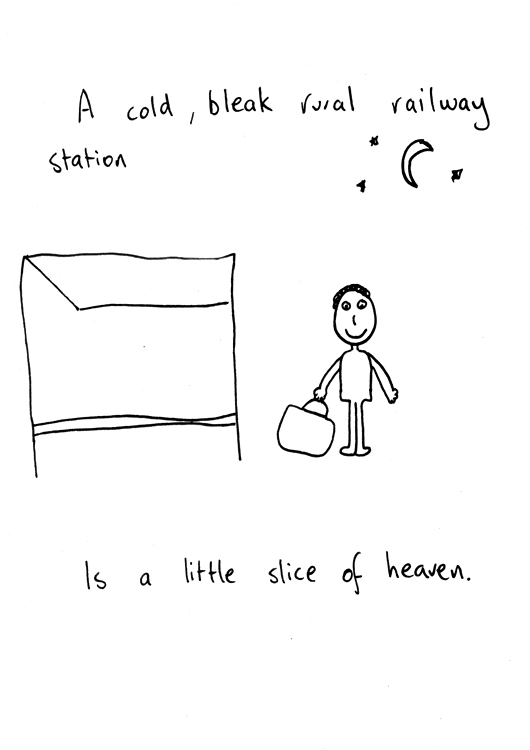 A cold, bleak rural railway
station
Is a little slice of heaven.